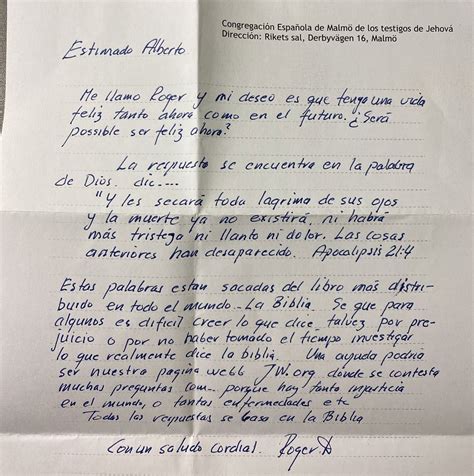 Congregación Española de Malmö de los testigos de Jehová
Dirección: Rikets sal, Derbyvägen 16, Malmö
Estimado Alberto
Me llamo Roger y mi deseo es que tenga una vida
feliz tanto ahora como en el futuro. ¿Será
possible ser feliz ahora?
La respuesta se encuentra en la palabra
de Dios. dic....
"Y les secará toda lagrima de sus ojos
y la muerte ya no existirá, ni habrá
más tristeza ni llanto ni dolor. Las cosas
anteriores han desaparecido. Apocalipsis 21:4
Estas palabras estan sacadas del libro más distri-
buido en todo el mundo - La Biblia. Se que para
algunos es dificil creer lo que dice, talvez por pre-
juicio o por no haber tomado el tiempo investigar
lo que realmente dice la biblia. Una ayuda podria
ser nuestra pagina webb JW.org dónde se contesta
muchas preguntas com.. porque hay tanta injusticia
en el mundo, o tantas enfermedades etc
Todas las respuestas se basa en la Biblia
Con un saludo cordial. Roger